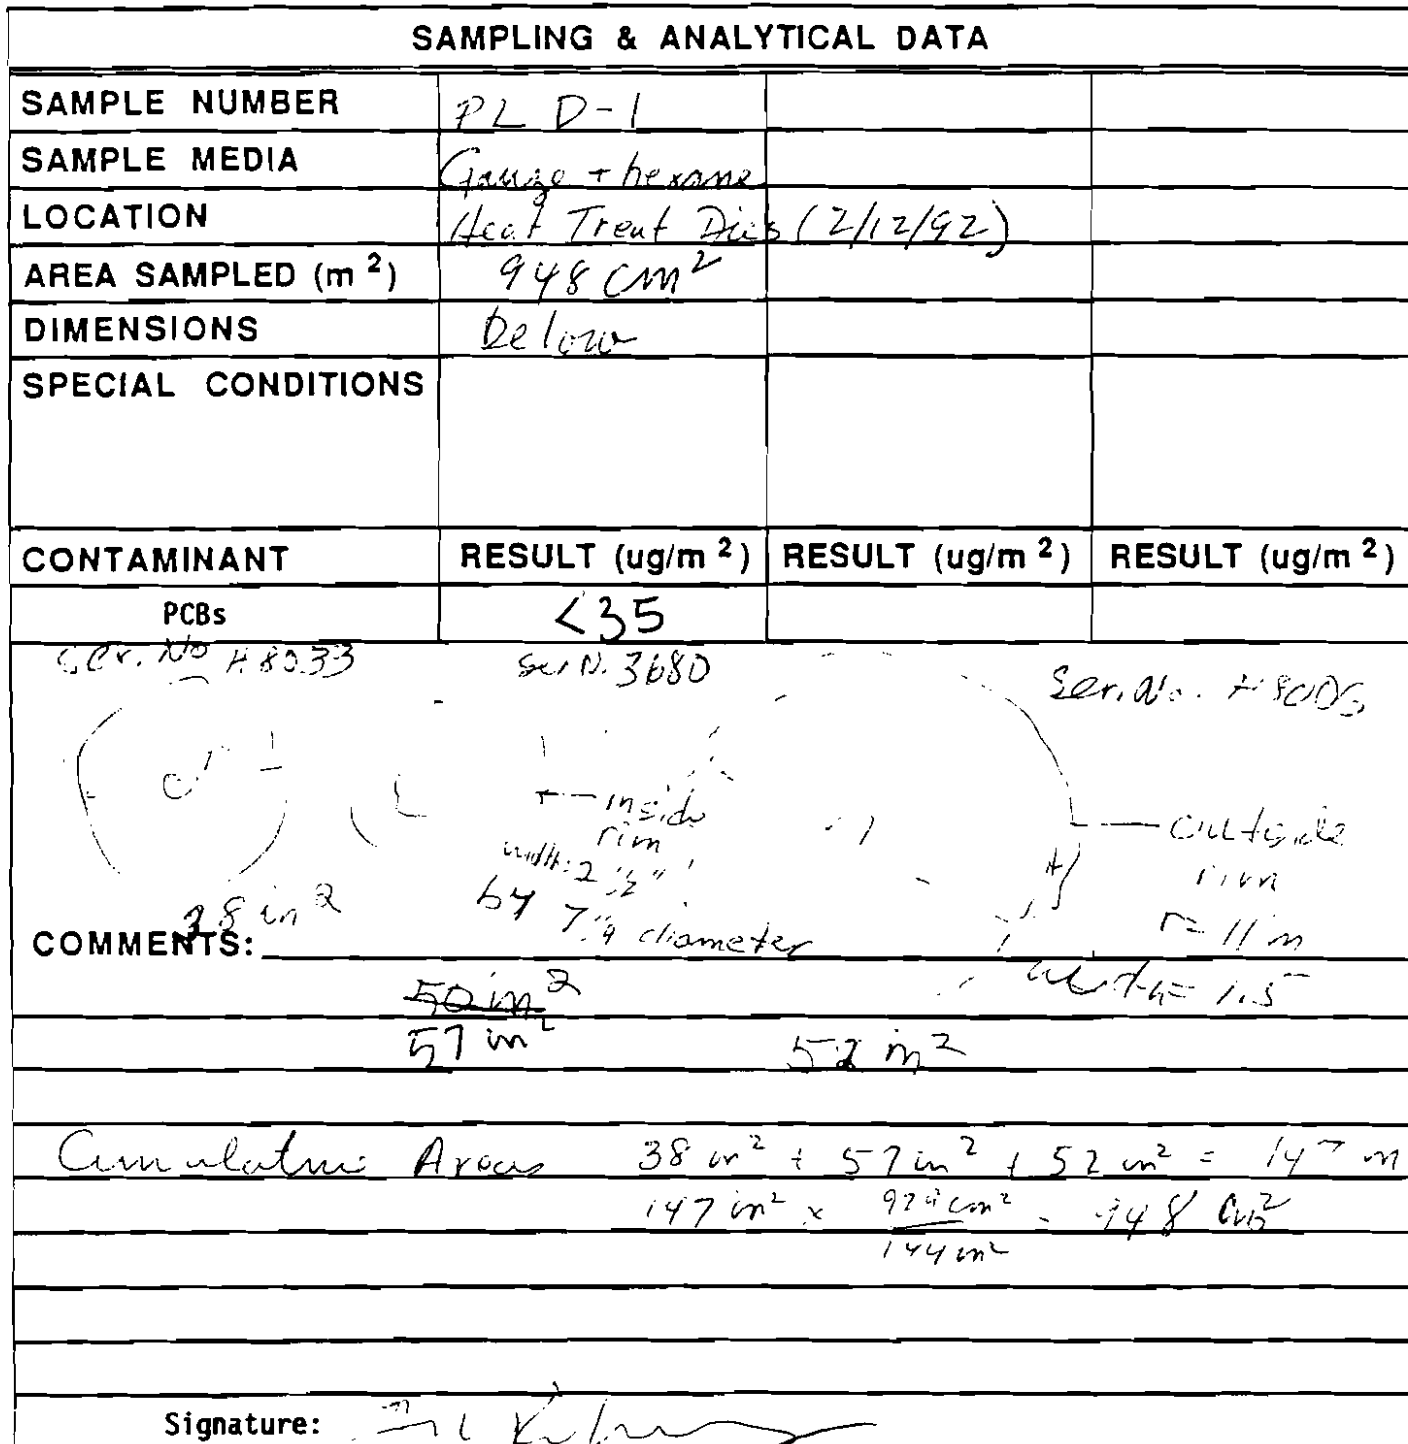 SAMPLING & ANALYTICAL DATA
SAMPLE NUMBER PL D-1
SAMPLE MEDIA Gauze + hexane
LOCATION Heat Treat Dies (2/12/92)
AREA SAMPLED (m 2) 948 cm2
DIMENSIONS Below
SPECIAL CONDITIONS
CONTAMINANT RESULT (ug/m 2) RESULT (ug/m 2) RESULT (ug/m 2)
PCBs <35
Ser. No H8033 Ser N. 3680 Ser. No.
inside
rim
width: 2 1/2"
by 7 1/4 diameter
outside
rim
r= 11 in
width= 1.5
38 in2
COMMENTS:
50 in2
57 in2 52 in2
Cumulative Areas 38 in2 + 57 in2 + 52 in2 = 147 in
147 in2 x 929 cm2 = 948 cm2
144 in2
Signature: